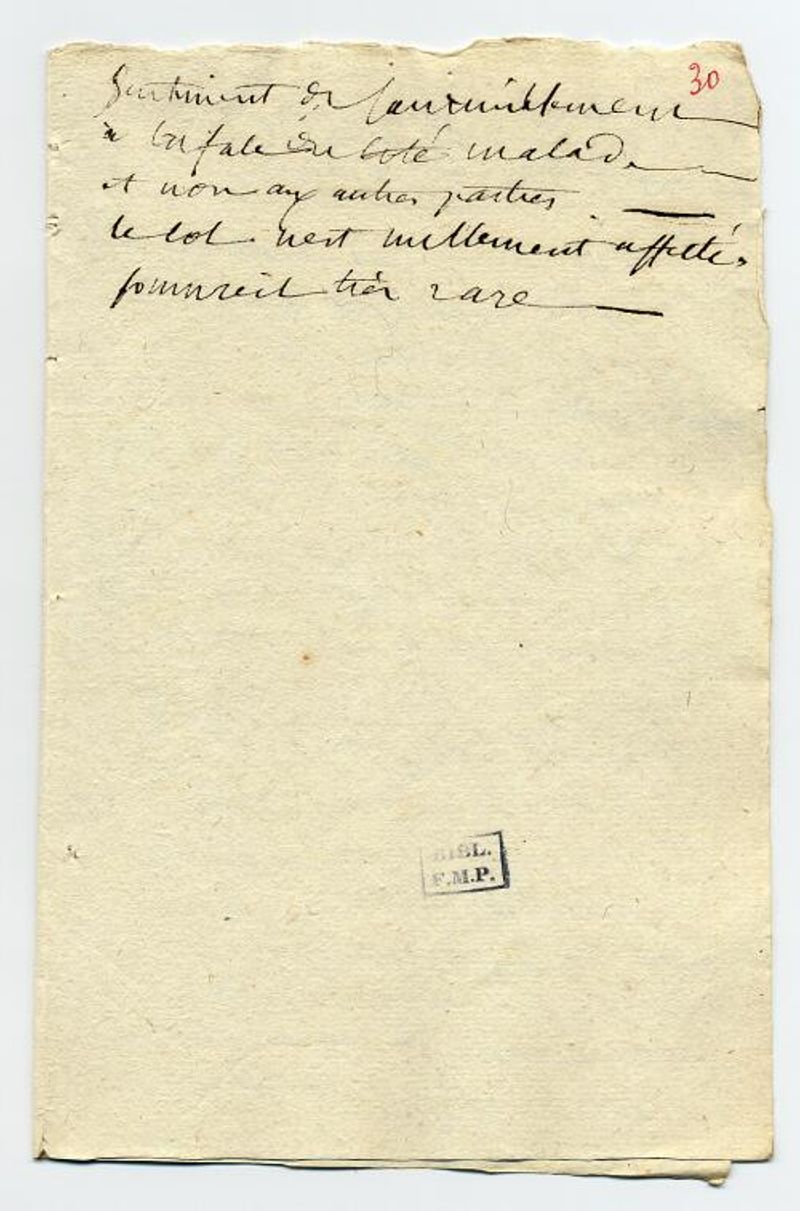 30
Sentiment de fourmillement
à la face du coté malade
et non aux autres parties
le col nest nullement affecté.
sommeil très rare
BIBL.
F.M.P.